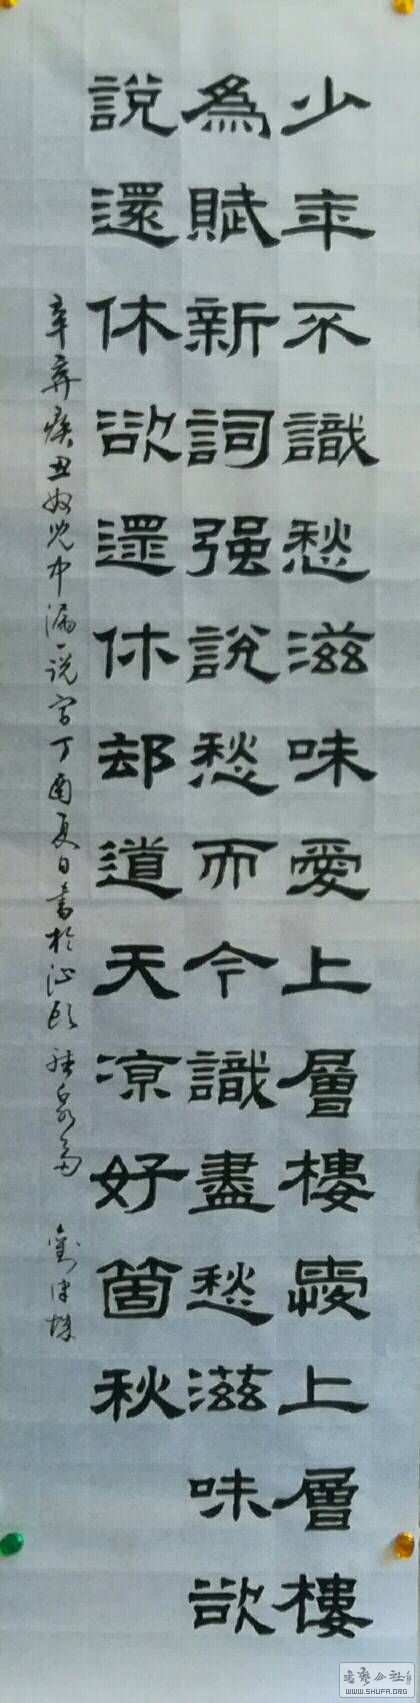 少年不識愁滋味愛上層樓愛上層樓
為賦新詞强說愁而今識盡愁滋味欲
說還休欲還休却道天涼好箇秋
辛弃疾丑奴兒中漏一说字丁酉夏日書於
劉
書藝公社
WWW.SHUFA.ORG